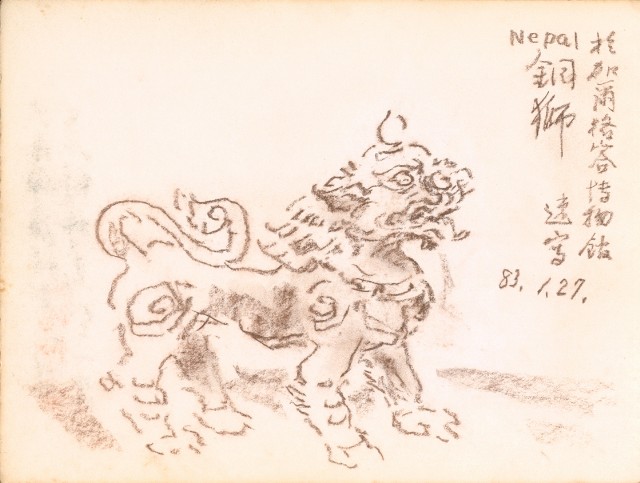 於加爾格答博物館
Nepal
銅獅
速寫
83.1.27.